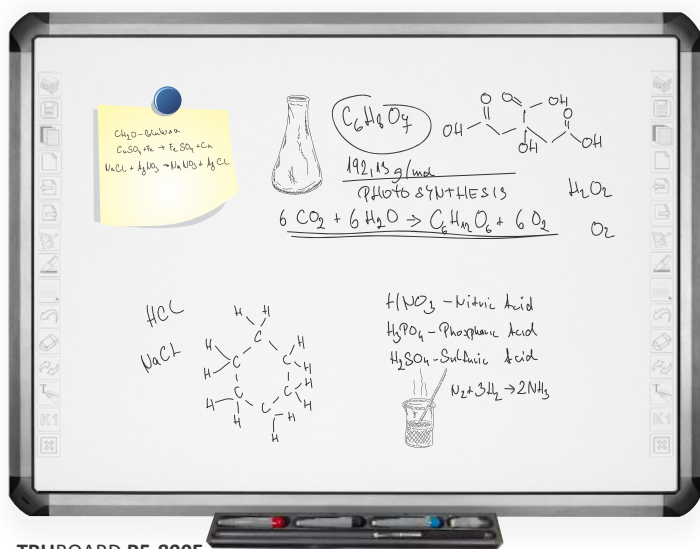 CH2O – Glukosa
CuSO4 + Fe → FeSO4 + Cu
NaCl + AgNO3 → NaNO3 + AgCl
C6H8O7
O
O
OH
O
OH
OH
OH
192,13 g/mol
PHOTOSYNTHESIS
6 CO2 + 6 H2O → C6H12O6 + 6 O2
H2O2
O2
HCl
NaCl
H H
C
H
C
H
C
H
H
C
H
H
C
H
H
C
H
H
HNO3 – Nitric Acid
H3PO4 – Phosphoric Acid
H2SO4 – Sulfuric Acid
N2 + 3H2 → 2NH3
K1
K1